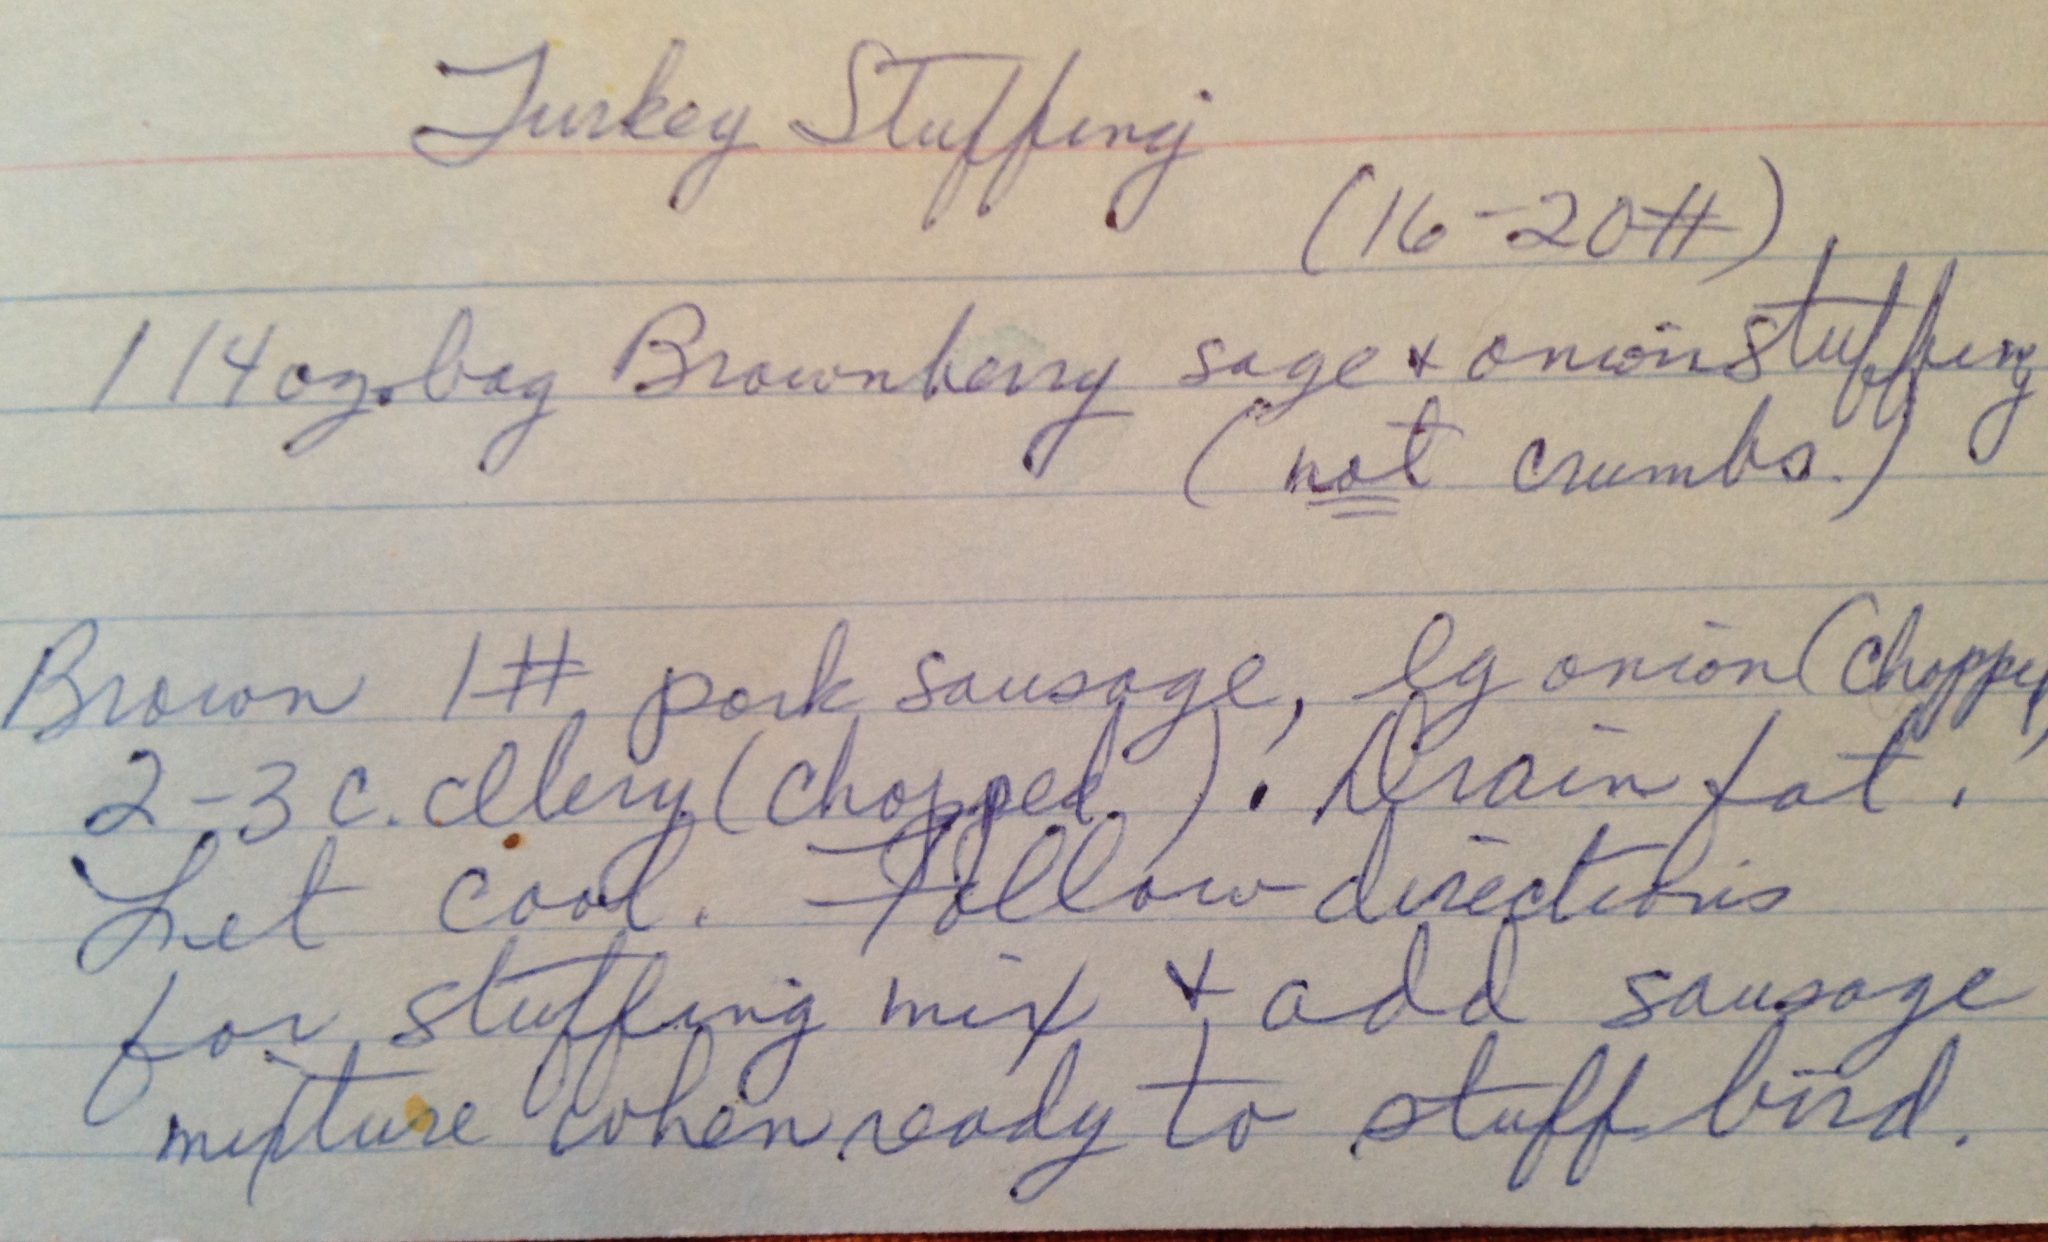 Turkey Stuffing
(16-20#)
1 14 oz. bag Brownberry sage & onion stuffing
(not crumbs.)
Brown 1# pork sausage, lg onion (chopped)
2-3 c. celery (chopped). Drain fat.
Let cool. Follow directions
for stuffing mix & add sausage
mixture when ready to stuff bird.